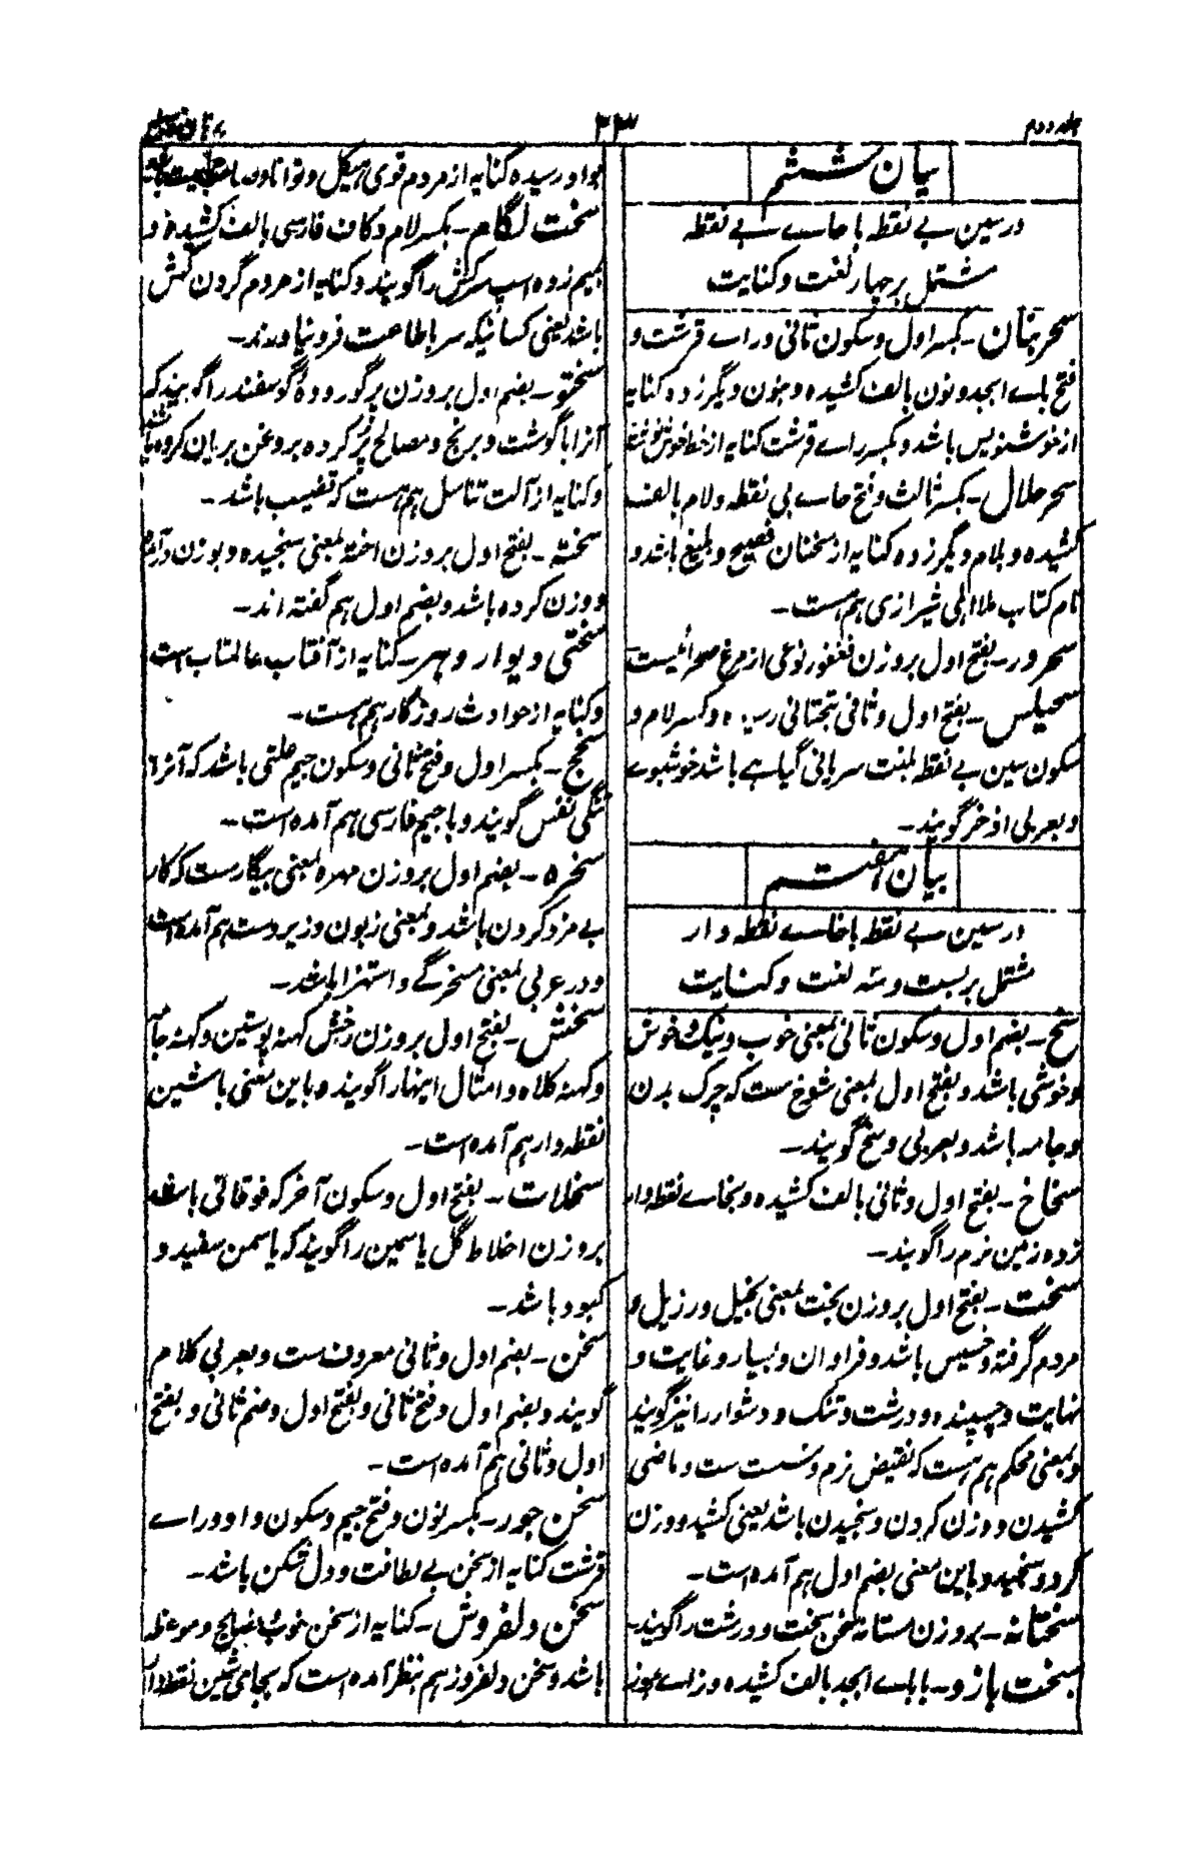 جلد دوم
۳۳
برهان قاطع
بیان ششم
در سین بے نقطه با حاے بے نقطه
مشتمل بر چهار لغت و کنایت
سحر بنان ـ بکسر اول و سکون ثانی و راے قرشت و
فتح باے ابجد و نون بالف کشیده و بنون دیگر زده کنایه
از خوشنویس باشد و بکسر راے قرشت کنایه از خط خوش
سحر حلال ـ بکسر ثالث و فتح حاے بی نقطه و لام بالف
کشیده و بلام دیگر زده کنایه از سخنان فصیح و بلیغ باشد و
نام کتاب ملا اهلی شیرازی هم هست ـ
سحرور ـ بفتح اول بروزن فغفور نوعی از مرغ صحرائیست
سحیلس ـ بفتح اول و ثانی بتحتانی رسیده و کسر لام و
سکون سین بے نقطه بلغت سریانی گیاهے باشد خوشبوے
و بعربی اذخر گویند ـ
بیان هفتم
در سین بے نقطه با خاے نقطه دار
مشتمل بر بیست و سه لغت و کنایت
سخ ـ بضم اول و سکون ثانی بمعنی خوب و نیک و خوش
و خوشی باشد و بفتح اول بمعنی شوخ ست که چرک بدن
و جامه باشد و بعربی وسخ گویند ـ
سخاخ ـ بفتح اول و ثانی بالف کشیده و بخاے نقطه دار
زده زمین نرم را گویند ـ
سخت ـ بفتح اول بروزن بخت بمعنی بخیل و رزیل و
مردم گرفته و خسیس باشد و فراوان و بسیار و غایت و
نهایت و چسپنده و درشت و تنک و دشوار را نیز گویند
و بمعنی محکم هم هست که نقیض نرم و سست ست و ماضی
کشیدن و وزن کردن و سنجیدن باشد یعنی کشید و وزن
کرد و سنجید و باین معنی بضم اول هم آمده است ـ
سختانه ـ بروزن مستانه سخن سخت و درشت را گویند ـ
سخت بازو ـ با باے ابجد بالف کشیده و زاے هوز
بواو رسیده کنایه از مردم قوی هیکل و توانا و
سخت لگام ـ بکسر لام و کاف فارسی بالف کشیده و
بمیم زده اسپ سرکش را گویند و کنایه از مردم گردن کش
باشد یعنی کسانیکه سر باطاعت فرو نیاورند ـ
سختو ـ بضم اول بروزن پرگو رودۀ گوسفند را گویند که
آنرا با گوشت و برنج و مصالح پر کرده بروغن بریان کرده باشند
و کنایه از آلت تناسل هم هست که قضیب باشد ـ
سخته ـ بفتح اول بروزن اخته بمعنی سنجیده و بوزن درآمده
و وزن کرده باشد و بضم اول هم گفته اند ـ
سختی دیوار دهر ـ کنایه از آفتاب عالمتاب است
و کنایه از حوادث روزگار هم هست ـ
سخج ـ بکسر اول و فتح ثانی و سکون جیم علتی باشد که آنرا
تنگی نفس گویند و با جیم فارسی هم آمده است ـ
سخره ـ بضم اول بروزن مهره بمعنی بیگارست که کار
بے مزد کردن باشد و بمعنی زبون و زیردست هم آمده است
و در عربی بمعنی مسخرگے و استهزا باشد ـ
سخش ـ بفتح اول بروزن رخش کهنه پوستین و کهنه جامه
و کهنه کلاه و امثال اینها را گویند و باین معنی با شین
نقطه دار هم آمده است ـ
سخلات ـ بفتح اول و سکون آخر که فوقانی باشد
بروزن اخلاط گل یاسمین را گویند که یاسمن سفید و
کبود باشد ـ
سخن ـ بضم اول و ثانی معروف ست و بعربی کلام
گویند و بضم اول و فتح ثانی و بفتح اول و ضم ثانی و بفتح
اول و ثانی هم آمده است ـ
سخن جور ـ بکسر نون و فتح جیم و سکون واو و راے
قرشت کنایه از سخن بے لطافت و دل شکن باشد ـ
سخن دلفروش ـ کنایه از سخن خوب و نصایح و موعظه
باشد و سخن دلفروز هم بنظر آمده است که بجای شین نقطه دار